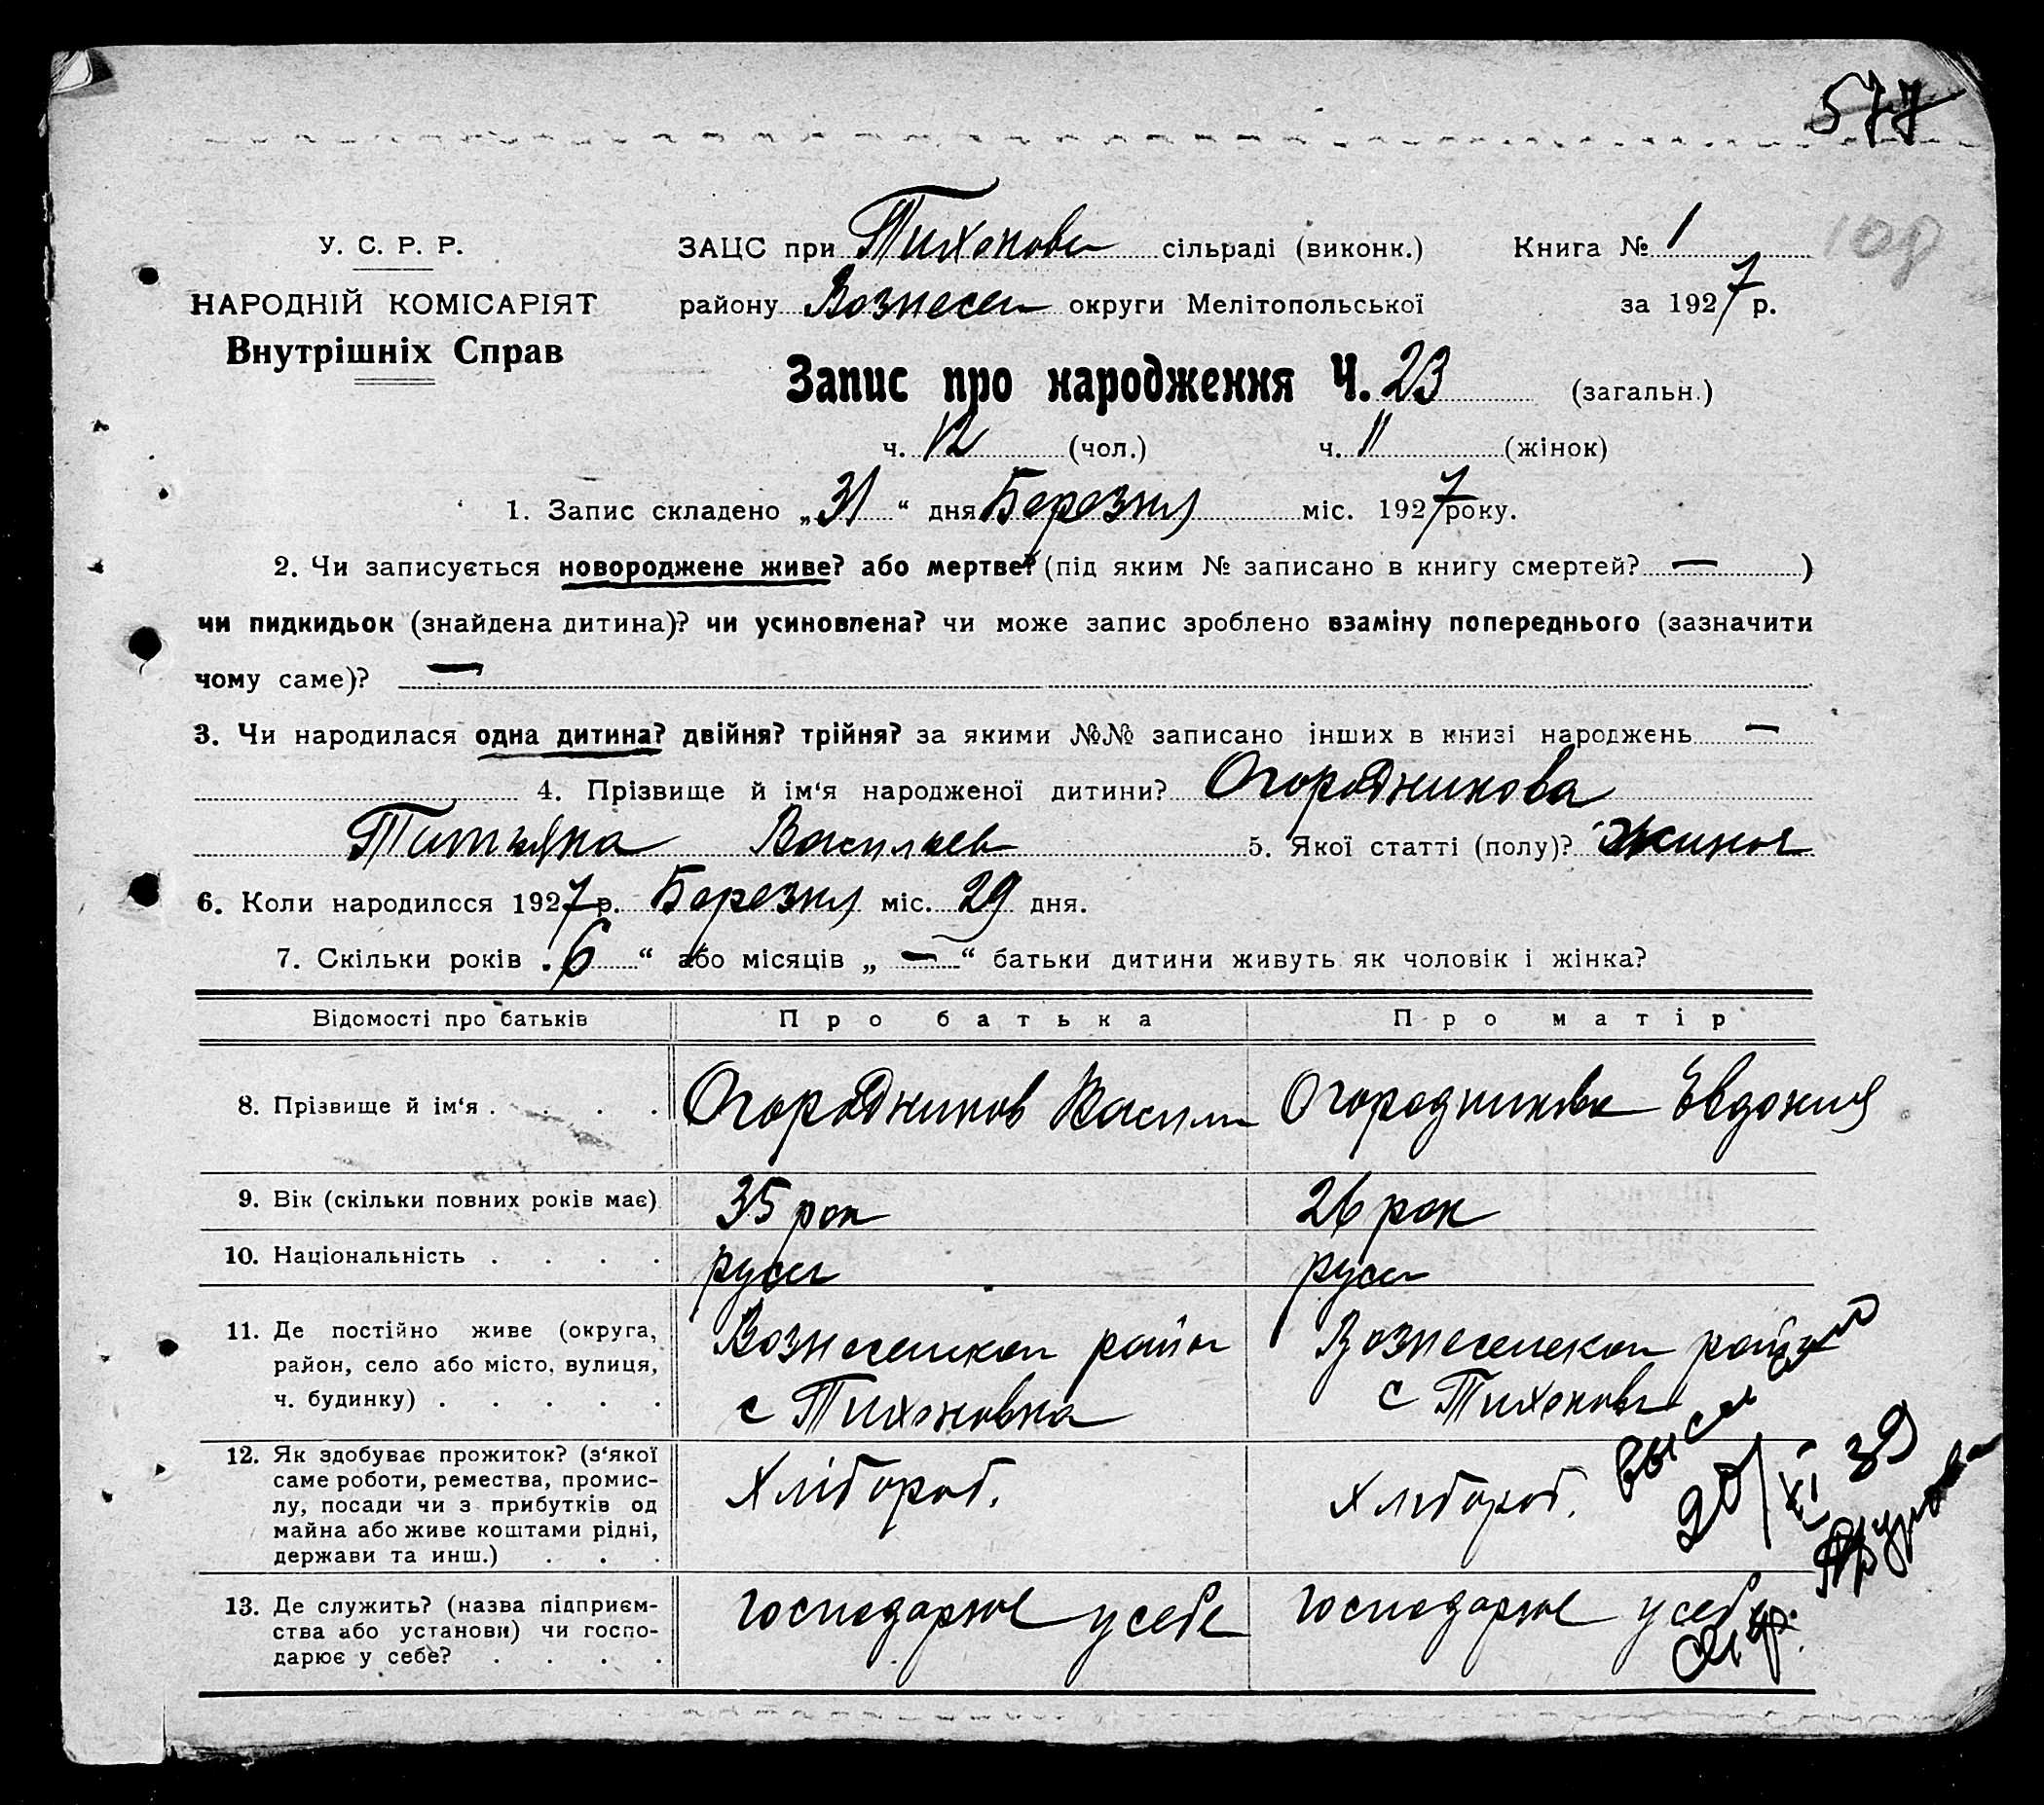 577
У. С. Р. Р.
НАРОДНІЙ КОМІСАРІЯТ
Внутрішніх Справ
ЗАЦС при Тихонови сільраді (виконк.) Книга № 1
108
району Вознесен округи Мелітопольської за 1927 р.
Запис про народження Ч. 23 (загальн.)
ч. 12 (чол.) ч. 11 (жінок)
1. Запис складено „31“ дня Березня міс. 1927 року.
2. Чи записується новороджене живе? або мертве? (під яким № записано в книгу смертей? — )
чи пидкидьок (знайдена дитина)? чи усиновлена? чи може запис зроблено взаміну попереднього (зазначити
чому саме)? —
3. Чи народилася одна дитина? двійня? трійня? за якими №№ записано інших в книзі народжень —
4. Прізвище й ім‘я народженої дитини? Огородникова
Титьяна Васильев 5. Якої статті (полу)? жиноч
6. Коли народилося 1927 р. Березня міс. 29 дня.
7. Скільки років „6“ або місяців „—“ батьки дитини живуть як чоловік і жінка?
Відомості про батьків Про батька Про матір
8. Прізвище й ім‘я . . . . Огородников Васили Огородникова Евдокия
9. Вік (скільки повних років має) 35 рок 26 рок
10. Національність . . . . руси руси
11. Де постійно живе (округа,
район, село або місто, вулиця,
ч. будинку) . . . . .
Вознесенкои район
с Тихоновка
Вознесенскои район
с Тихоновк
12. Як здобуває прожиток? (з‘якої
саме роботи, ремества, промис-
лу, посади чи з прибутків од
майна або живе коштами рідні,
держави та инш.) . . .
Хлібороб.
Хлібороб.
20/XI 39
13. Де служить? (назва підприєм-
ства або установи) чи госпо-
дарює у себе? . . . .
господарює у себе
господарює у себе